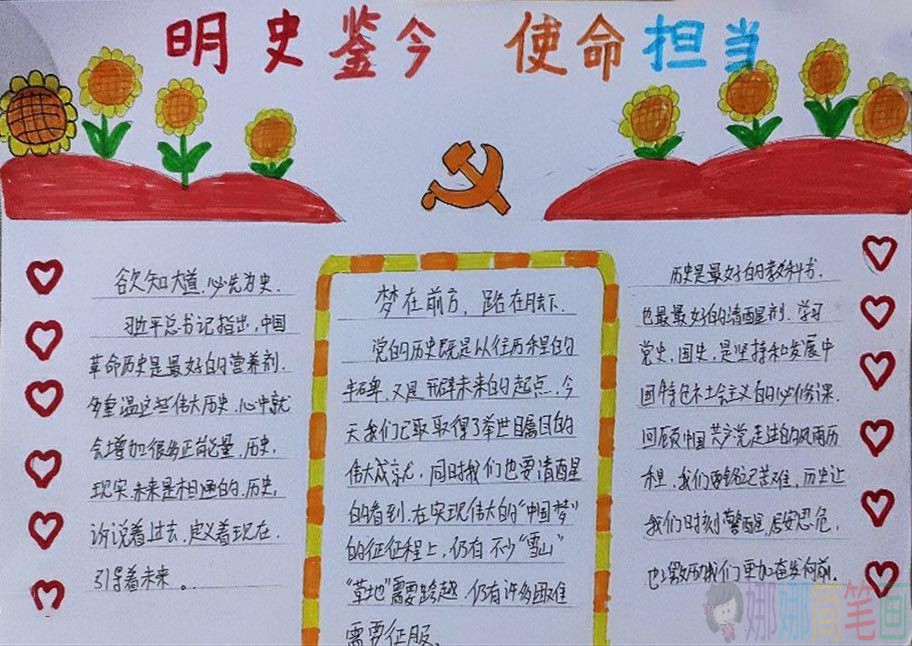 明史鉴今 使命担当
欲知大道,必先为史.
习近平总书记指出,中国
革命历史是最好的营养剂.
多重温这些伟大历史,心中就
会增加很多正能量,历史,
现实,未来是相通的,历史,
诉说着过去,定义着现在.
引导着未来。
梦在前方,路在脚下.
党的历史既是以往历程的
丰碑,又是开辟未来的起点.今
天我们已取取得了举世瞩目的
伟大成就,同时我们也要清醒
的看到.在实现伟大的“中国梦”
的征征程上,仍有不少“雪山”
“草地”需要跨越.仍有许多困难
需要征服.
历史是最好的教科书.
也最最好的清醒剂.学习
党史,国史,是坚持和发展中
国特色社会主义的必修课.
回顾中国共产党走过的风雨历
程,我们要铭记苦难,历史让
我们时刻警醒,居安思危,
也激励我们更加奋发向前.
娜娜简笔画